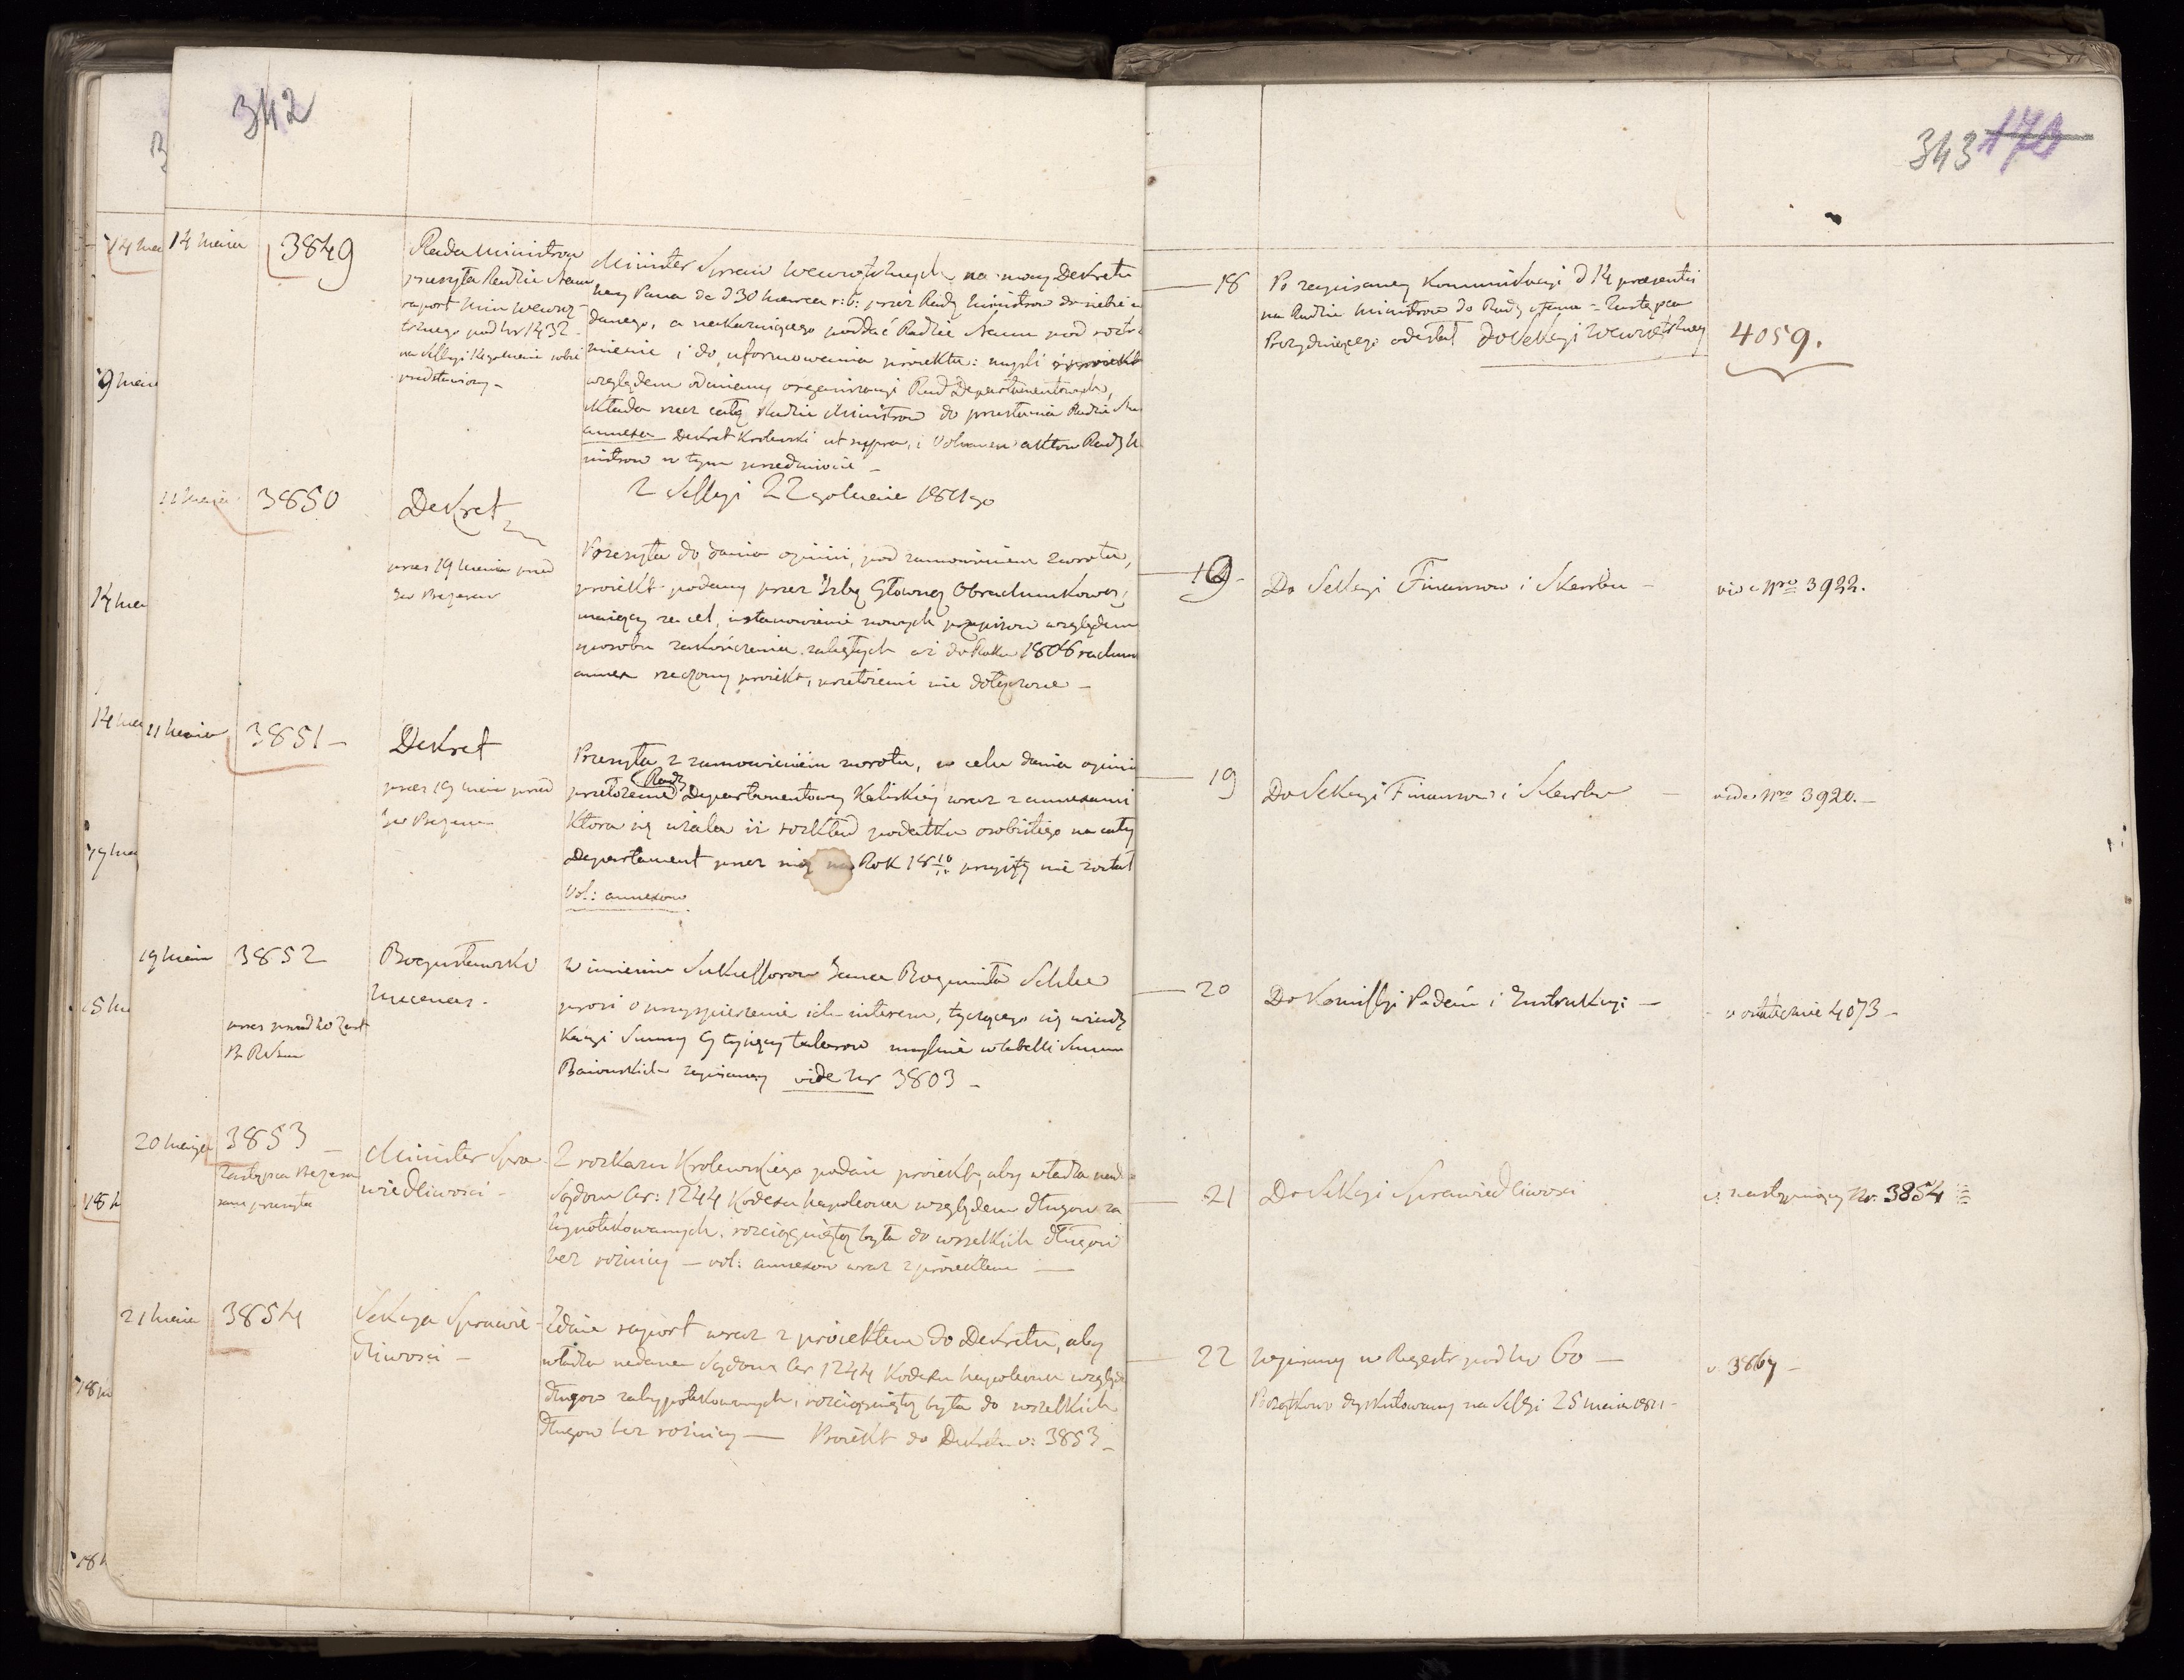 342
343 173
14 Maia
3849
Rada Ministrow
przesyła Radzie Stanu
raport Min: Wewnę-
trznego pod Nr 1432
na Sessyi Krolewnie sobie
przedstawiony –
Minister Spraw Wewnętrznych na mocy Dekretu
Nay: Pana de d 30 Marca r: b: przez Radę Ministrow do siebie
danego, a nakazuiącego poddać Radzie Stanu pod roztrzą
śnienie i do uformowania proiektu: myśli i proiekt
względem odmiany organizacyi Rad Departamentowych,
składa rzecz całą Radzie Ministrow do przesłania Radzie Sta
annexa Dekret Krolewski ut supra, i Volumen aktow Rady Mi
nistrow w tym przedmiocie –
18
Po zapisaney Kommunikacyi d 14 praesentis
na Radzie Ministrow do Rady Stanu = Zastępca
Prezyduiącego odesłał do Sekcyi Wewnętrzney
4059.
Z Sessyi 22go Maia 1811go
11 Maia
3850
Dekret
przez 19 Maia przed
Przesyła do dania opinii, pod zamowieniem zwrotu,
proiekt podany przez Izbę Głowną Obrachunkową,
maiący za cel, ustanowienie nowych przepisow względem
sposobu zakończenia zaległych aż do Roku 1806 rachun
annex rzeczony proiekt, przełożenie nie dołączone –
19
Do Sekcyi Finansow i Skarbu –
vide Nro 3922.
11 Maia
3851 –
Dekret
przez 19 Maia przed
Przesyła z zamowieniem zwrotu, w celu dania opinii
przełożenie Rady Departamentowey Kaliskiey wraz z annexami
Ktora się użala iż rozkład podatku osobistego na cały
Departament przez nię na Rok 18 10/11 przyięty nie został
vol: annexow
19
Do Sekcyi Finansow i Skarbu –
vide Nro 3920. –
19 Maia
3852
Bogusławski
Mecenas.
W imieniu Sukcessorow Jana Bogumiła Schlie
prosi o przyspieszenie ich interesu, tyczącego się windy
kacyi Summy 9 tysięcy talarow mylnie w tabelli Summ
Baiońskich zapisaney vide Nr 3803 –
20
Do Komissyi Podań i Instrukcyi –
v ostatecznie 4073 –
20 Maia
3853 –
Zastępca Prezesa
sam przesyła
Minister Spra-
wiedliwości –
Z rozkazu Krolewskiego podaie proiekt, aby władza nad
Sądom Ar: 1244 Kodexu Napoleona względem długow za
hypotekowanych, rozciągniętą była do wszelkich długow
bez rożnicy – vol: annexow wraz z proiektem –
21
Do Sekcyi Sprawiedliwości
v: następuiący Nr: 3854
21 Maia
3854
Sekcya Sprawie-
dliwości –
Zdaie raport wraz z proiektem do Dekretu, aby
władza nadana Sądom Ar 1244 Kodexu Napoleona wzglę
długow zahypotekowanych, rozciągniętą była do wszelkich
długow bez rożnicy – Proiekt do Dekretu v: 3853 –
22
Wpisany w Regestr pod No 60 –
Początkowo dyskutowany na Sessyi 25 Maia 1811 –
v. 3867 –